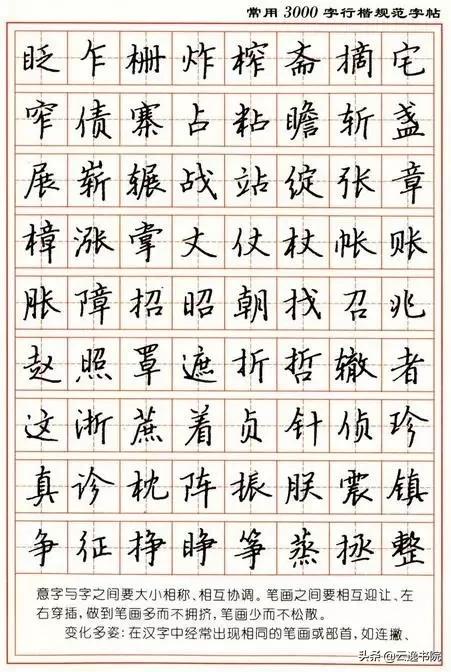 常用3000字行楷规范字帖
眨乍栅炸榨斋摘宅
窄债寨占粘瞻斩盏
展崭辗战站绽张章
樟涨掌丈仗杖帐账
胀障招昭朝找召兆
赵照罩遮折哲辙者
这浙蔗着贞针侦珍
真诊枕阵振朕震镇
争征挣睁筝蒸拯整
意字与字之间要大小相称、相互协调。笔画之间要相互迎让、左
右穿插，做到笔画多而不拥挤，笔画少而不松散。
变化多姿：在汉字中经常出现相同的笔画或部首，如连撇、
头条 @云逸书院